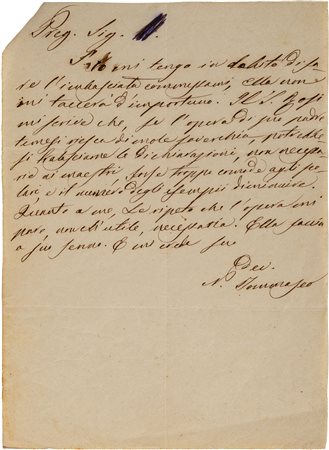 Preg. Sig.
Io mi tengo in debito di fa-
re l'imbasciata commessami, Ella non
mi taccerà d'importuno. Il S.
mi scrive che, se l'opera di suo padre
temesi riesca di mole soverchia, potrebbe-
si tralasciarne le dichiarazioni, non necessa-
rie ai maestri, forse troppo comode agli sco-
lari e il numero degli esempii diminuire.
Quanto a me, Le ripeto che l'opera mi
pare, non ch'utile, necessaria. Ella faccia
a suo senno. E mi creda suo
Dev.
N. Tommaseo